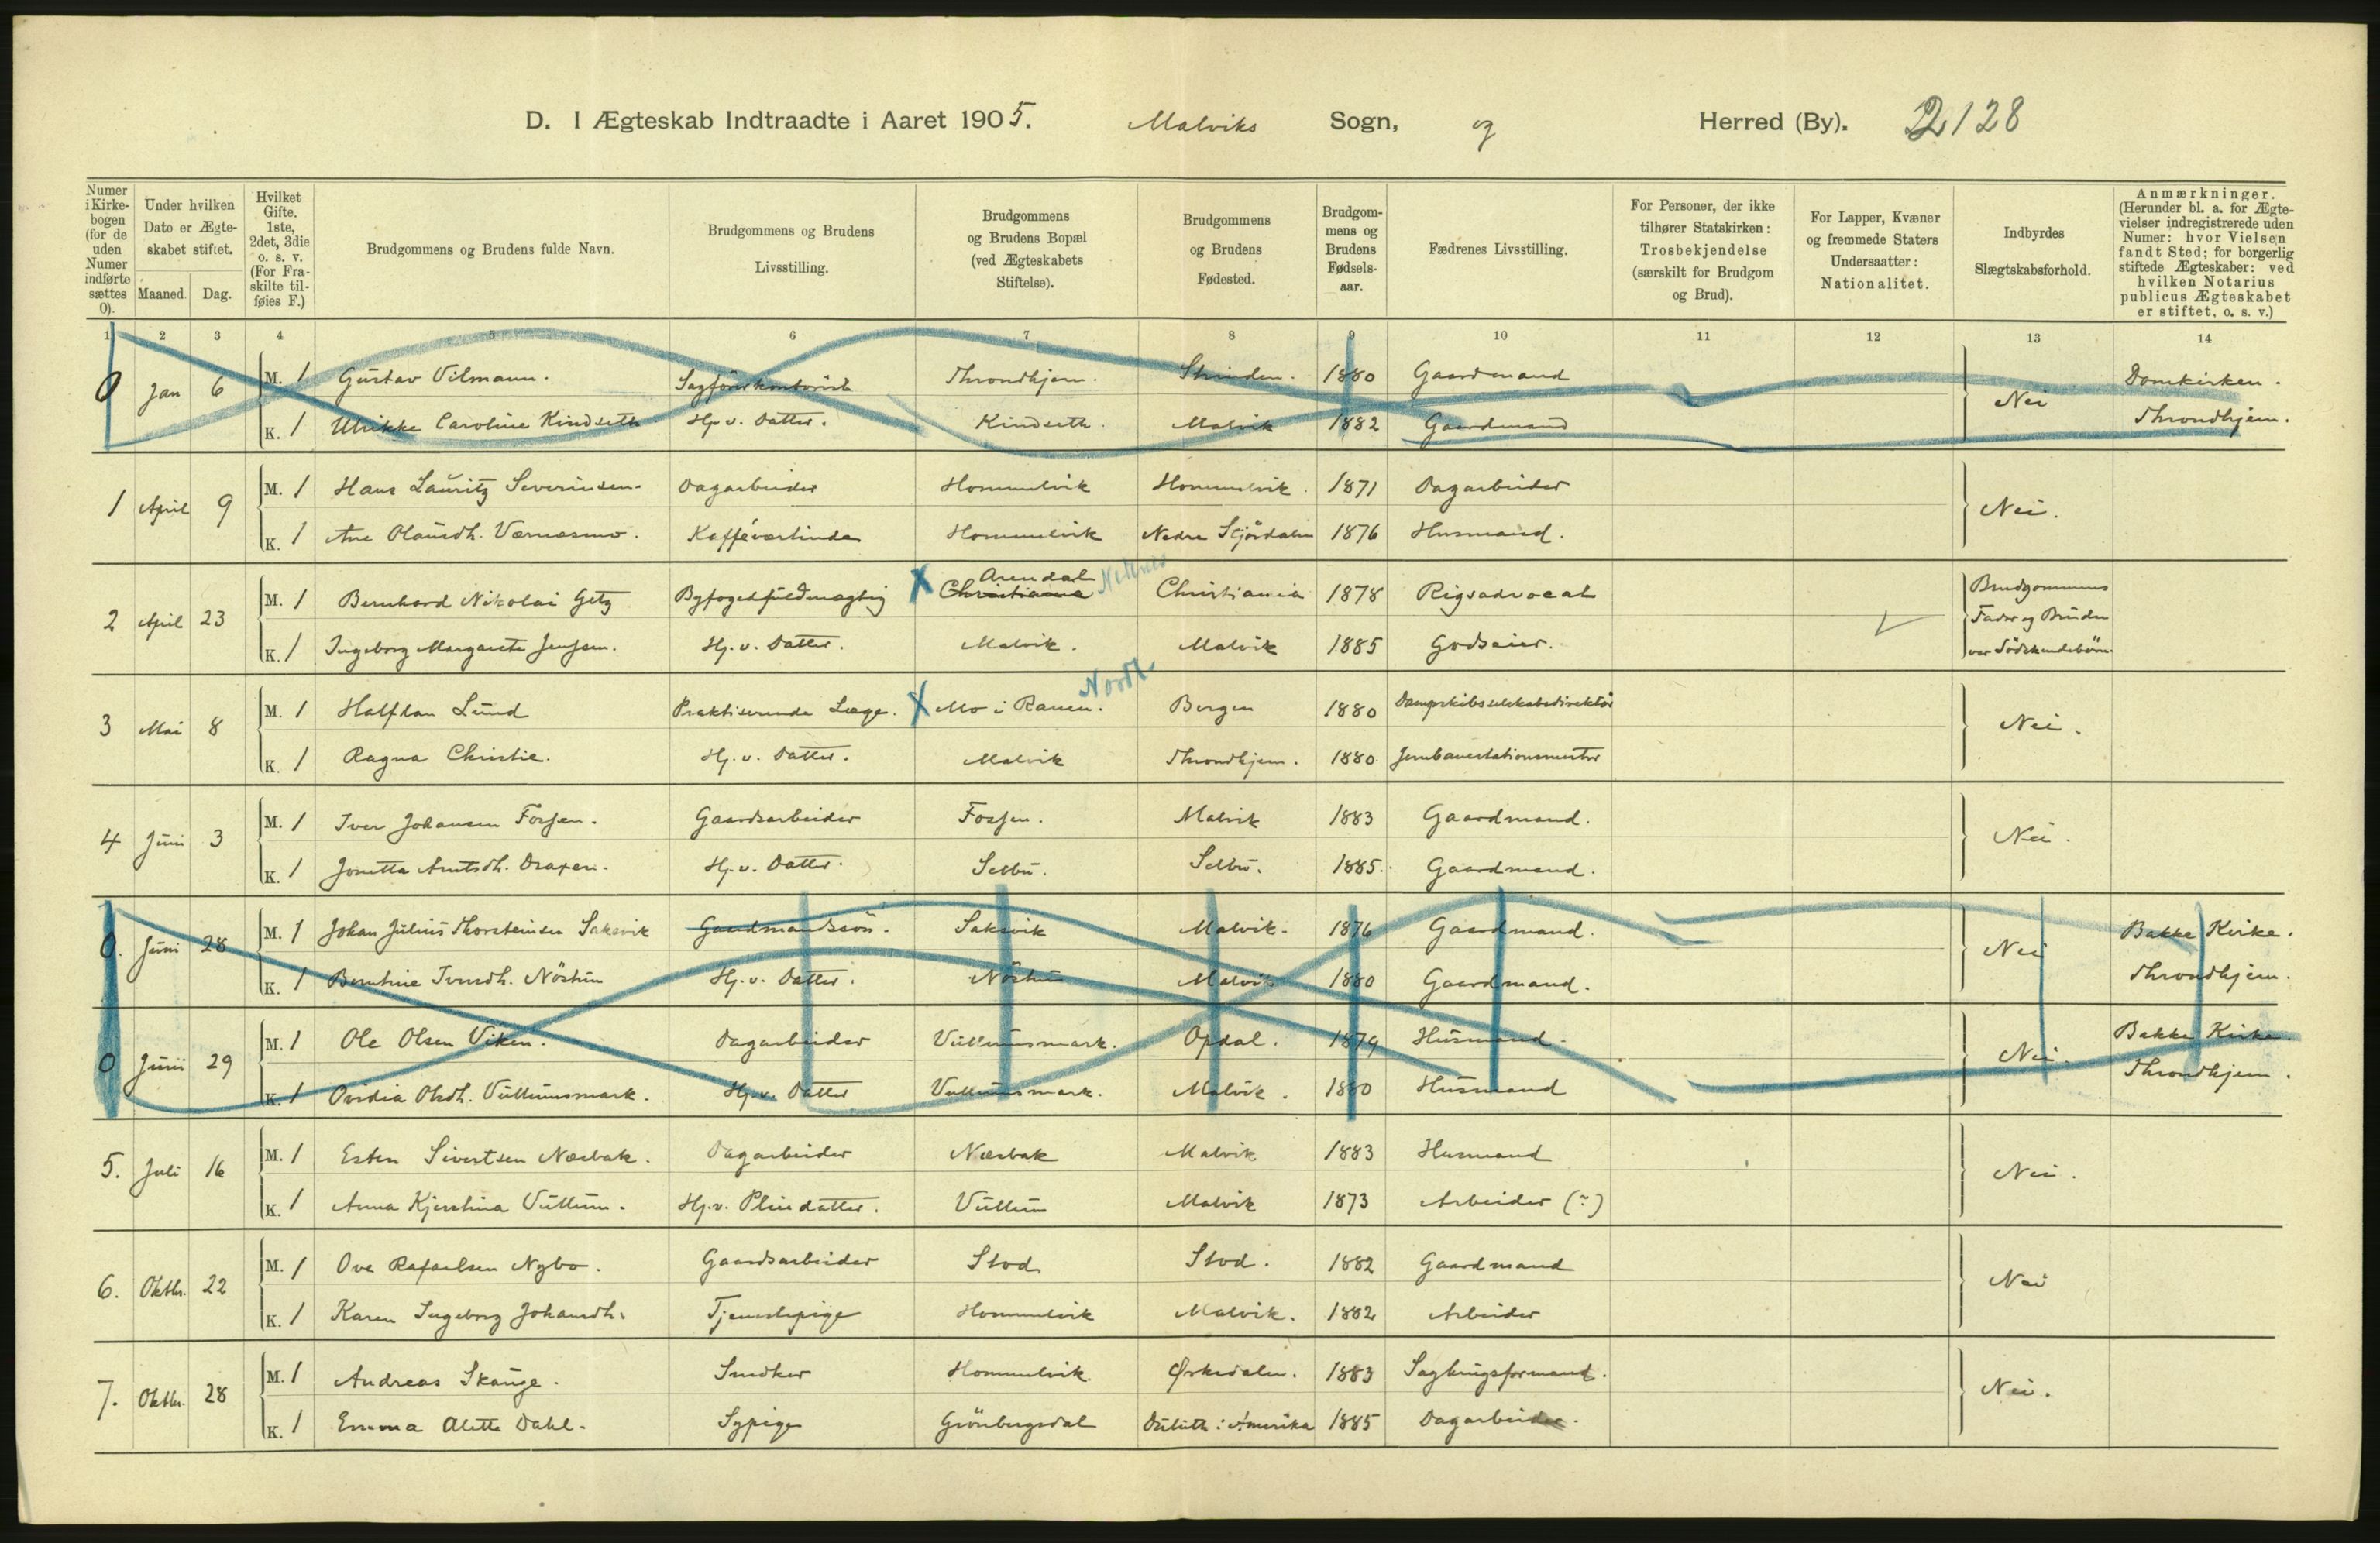 D. I Ægteskab Indtraadte i Aaret 1905. Malviks Sogn, og Herred (By). 2128
Numer i Kirkebogen (for de uden Numer indførte sættes 0).
Under hvilken Dato er Ægteskabet stiftet.
Maaned. Dag.
Hvilket Gifte. 1ste, 2det, 3die o. s. v. (For Fraskilte tilføies F.)
Brudgommens og Brudens fulde Navn.
Brudgommens og Brudens Livsstilling.
Brudgommens og Brudens Bopæl (ved Ægteskabets Stiftelse).
Brudgommens og Brudens Fødested.
Brudgommens og Brudens Fødselsaar.
Fædrenes Livsstilling.
For Personer, der ikke tilhører Statskirken: Trosbekjendelse (særskilt for Brudgom og Brud).
For Lapper, Kvæner og fremmede Staters Undersaatter: Nationalitet.
Indbyrdes Slægtskabsforhold.
Anmærkninger. (Herunder bl. a. for Ægtevielser indregistrerede uden Numer: hvor Vielsen fandt Sted; for borgerlig stiftede Ægteskaber: ved hvilken Notarius publicus Ægteskabet er stiftet, o. s. v.)
1 2 3 4 5 6 7 8 9 10 11 12 13 14
0 Jan 6 M. 1 Gustav Vilmann. Sagførerkontorist Throndhjem. Strinden. 1880 Gaardmand Nei Domkirken.
K. 1 Ulrikke Caroline Kindseth Hj. v. Datter. Kindseth. Malvik 1882 Gaardmand Throndhjem.
1 April 9 M. 1 Hans Lauritz Severinsen. Dagarbeider Hommelvik Hommelvik. 1871 Dagarbeider Nei.
K. 1 Ane Olausdh. Værnesmo. Kafféværtinde Hommelvik Nedre Stjørdalen 1876 Husmand.
2 April 23 M. 1 Bernhard Nikolai Getz Byfogedfuldmægtig X Christiania Arendal Nedenes Christiania 1878 Rigsadvocat Brudgommens Fader og Bruden var Södskendebörn.
K. 1 Ingeborg Margarete Jenssen. Hj. v. Datter. Malvik. Malvik 1885 Godseier.
3 Mai 8 M. 1 Halfdan Lund Praktiserende Læge. X Mo i Ranen. Nordl. Bergen 1880 Dampskibsselskabsdirektör Nei.
K. 1 Ragna Christie. Hj. v. Datter. Malvik Throndhjem. 1880. Jernbanestationsmester
4 Juni 3 M. 1 Iver Johansen Fossen. Gaardsarbeider Fossen. Malvik 1883 Gaardmand. Nei.
K. 1 Jonetta Arntsdh. Draxen. Hj. v. Datter. Selbu. Selbu. 1885. Gaardmand.
0. Juni 28 M. 1 Johan Julius Thorsteinsen Saksvik Gaardmandssön. Saksvik Malvik. 1876 Gaardmand. Nei Bakke Kirke.
K. 1 Berntine Iversdh. Nöstum Hj. v. Datter. Nöstum Malvik 1880 Gaardmand. Throndhjem.
0 Juni 29 M. 1 Ole Olsen Viken. Dagarbeider Vullumsmark. Opdal. 1879 Husmand. Nei. Bakke Kirke.
K. 1 Ovidia Olsdh. Vullumsmark. Hj. v. Datter Vullumsmark. Malvik. 1880 Husmand Throndhjem.
5. Juli 16 M. 1 Esten Sivertsen Næsbak. Dagarbeider Næsbak Malvik 1883 Husmand Nei.
K. 1 Anna Kjerstina Vullum. Hj. v. Pleiedatter. Vullum Malvik 1873 Arbeider (?)
6. Oktbr. 22 M. 1 Ove Rafaelsen Nybo. Gaardsarbeider Stod Stod. 1882 Gaardmand Nei
K. 1 Karen Ingeborg Johansdh. Tjenestepige Hommelvik Malvik. 1882 Arbeider
7. Oktbr. 28 M. 1 Andreas Skauge. Snedker Hommelvik Ørkedalen. 1883 Sagbrugsformand. Nei.
K. 1 Emma Alette Dahl. Sypige Grönbergsdal Duluth i Amerika 1885 Dagarbeider.